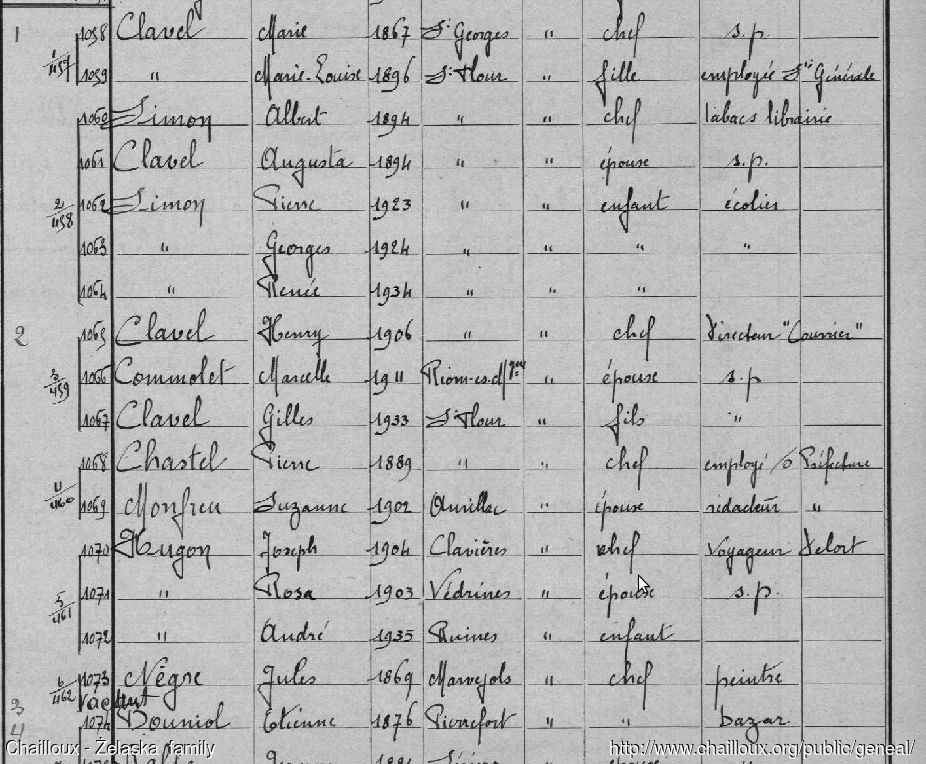 1 1058 Clavel Marie 1867 St Georges " chef s.p.
1/457 1059 " Marie-Louise 1896 St Flour " fille employée Sté Générale
1060 Simon Albert 1894 " " chef tabacs librairie
1061 Clavel Augusta 1894 " " épouse s.p.
2/458 1062 Simon Pierre 1923 " " enfant écolier
1063 " Georges 1924 " " " "
1064 " Renée 1934 " " "
2 1065 Clavel Henry 1906 " " chef directeur "Courrier"
3/459 1066 Commolet Marcelle 1911 Riom-es-M/gnes " épouse s.p
1067 Clavel Gilles 1933 St Flour " fils "
1068 Chastel Pierre 1889 " " chef employé s/ Préfecture
4/460 1069 Monfreu Suzanne 1902 Aurillac " épouse rédacteur "
1070 Hugon Joseph 1904 Clavières " chef voyageur Delort
5/461 1071 " Rosa 1903 Védrines " épouse s.p.
1072 " André 1935 Ruines " enfant
6/462 1073 Nègre Jules 1869 Marvejols " chef peintre
3 Vacant
4 1074 Douniol Etienne 1876 Pierrefort " " bazar
Chailloux - Želaska family http://www.chailloux.org/public/geneal/